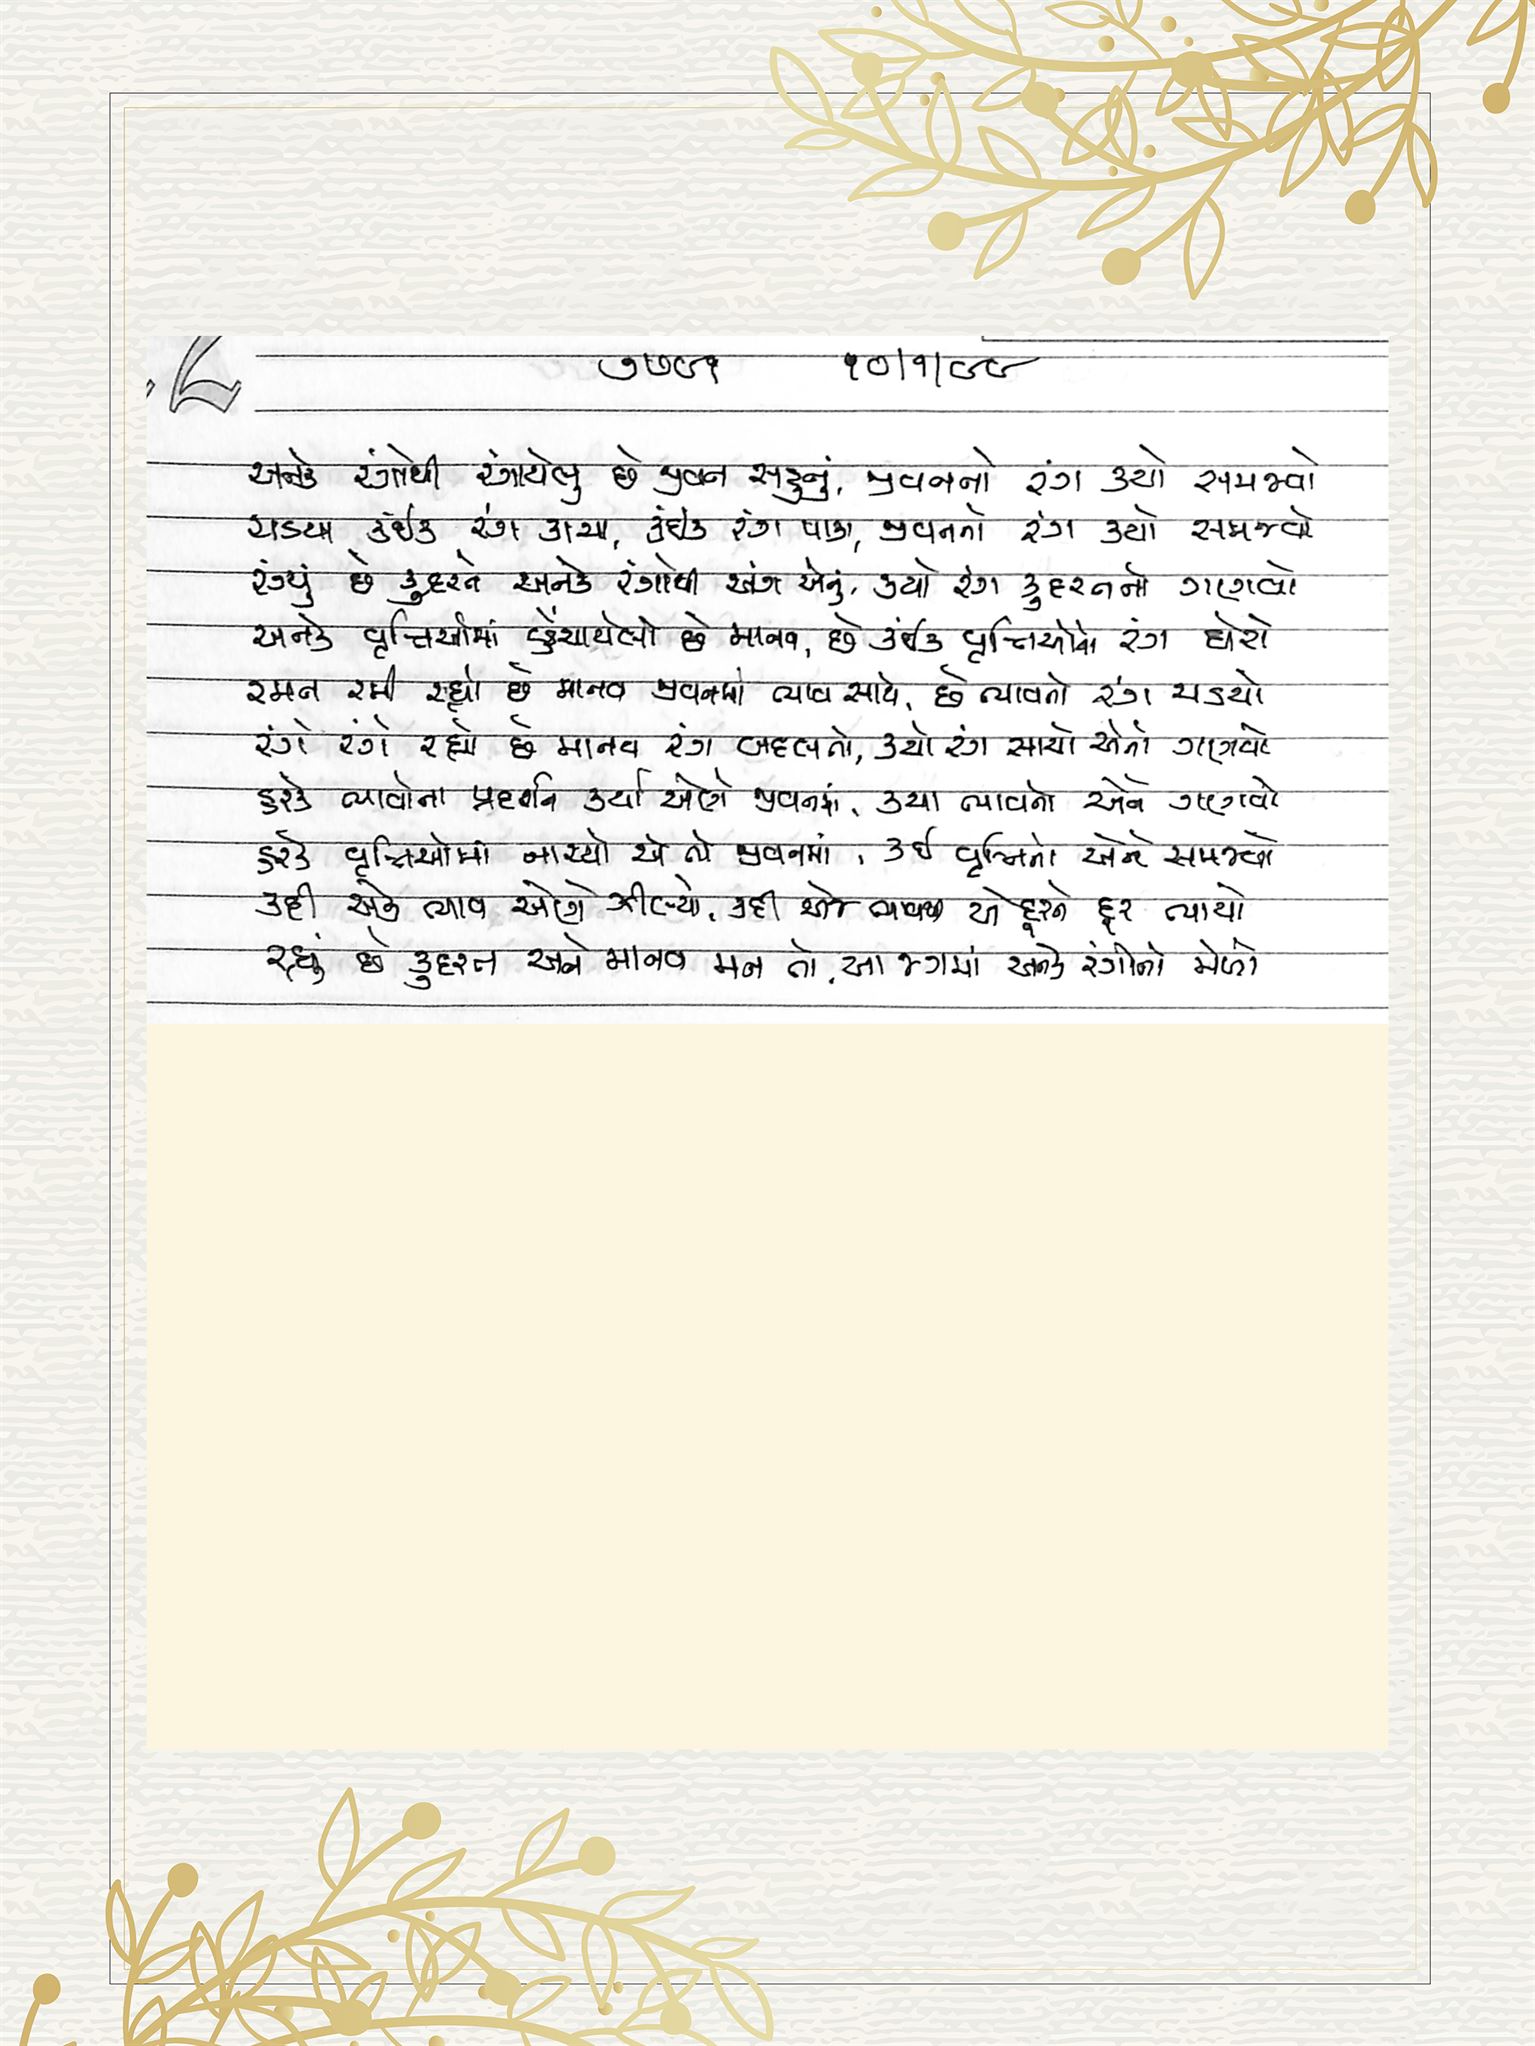 ૭૭૯૧ ૧૦/૧/૯૯
અનેક રંગોથી રંગાયેલુ છે જીવન સહુનું, જીવનનો રંગ કયો સમજવો
ચડયા કંઈક રંગ કાચા, કંઈક રંગ પાકા, જીવનનો રંગ કયો સમજવો
રંગ્યું છે કુદરતે અનેક રંગોથી અંગ એનું, કયો રંગ કુદરતનો ગણવો
અનેક વૃત્તિઓમાં વ્હેંચાયેલો છે માનવ, છે કંઈક વૃત્તિઓનો રંગ ઘેરો
રમત રમી રહ્યો છે માનવ જીવનમાં ભાવ સાથે, છે ભાવનો રંગ ચડયો
રંગે રંગે રહ્યો છે માનવ રંગ બદલતો, કયો રંગ સાચો એનો ગણવો
હરેક ભાવોના પ્રદર્શન કર્યા એણે જીવનમાં, કયા ભાવનો એને ગણવો
હરેક વૃત્તિઓમાં નાચ્યો એ તો જીવનમાં, કઈ વૃત્તિનો એને સમજવો
કદી એક ભાવ એણે ઝીલ્યો, કદી એજ ભાવથી એ દૂરને દૂર ભાગ્યો
રહ્યું છે કુદરત અને માનવ મન તો, આ જગમાં અનેક રંગોનો મેળો